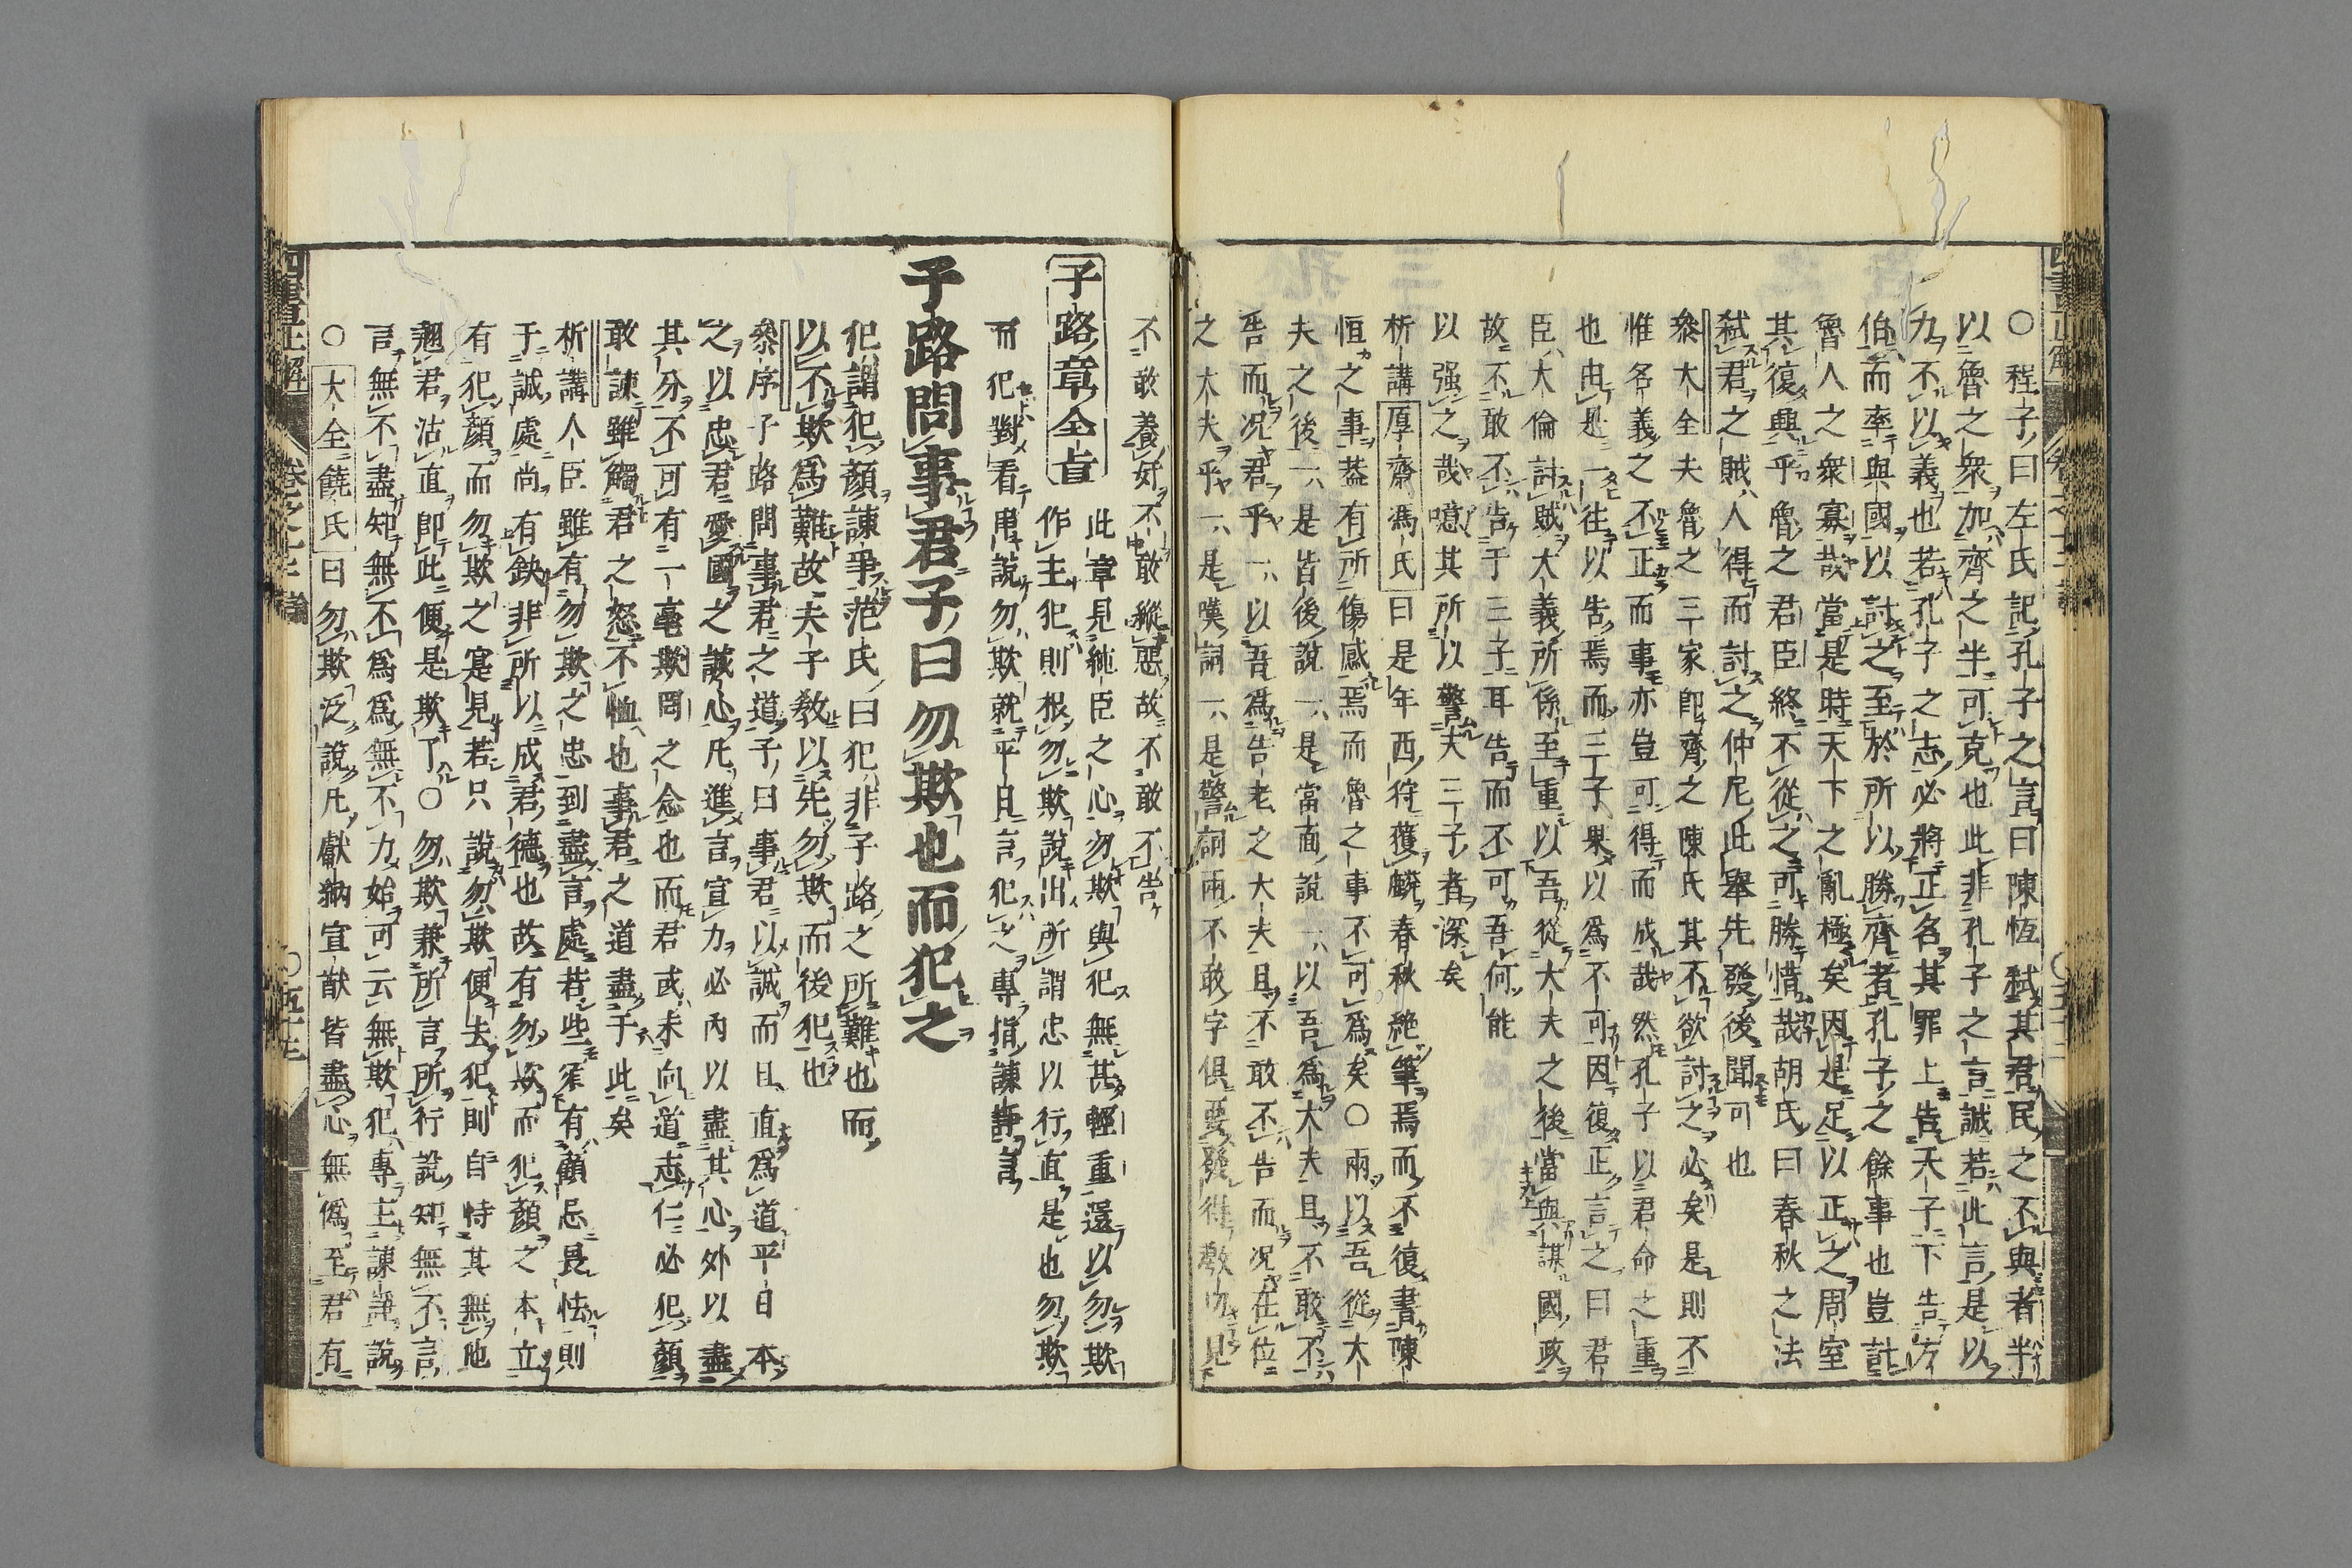 ○程子曰左氏記孔子之言曰陳恆弑其君民之不與者半
以魯之衆加齊之半可克也此非孔子之言誠若此言是以
力不以義也若孔子之志必將正名其罪上告天子下告方
伯而率與國以討之至於所以勝齊者孔子之餘事也豈計
魯人之衆寡哉當是時天下之亂極矣因是足以正之周室
其復興乎魯之君臣終不從之可勝惜哉胡氏曰春秋之法
弑君之賊人得而討之仲尼此舉先發後聞可也
叅大全夫魯之三家卽齊之陳氏其不欲討之必矣是則不
惟名義之不正而事亦豈可得而成哉然孔子以君命之重
也由是一徃以告焉而三子果以爲不可因復正言之曰君
臣大倫討賊大義所係至重以吾從大夫之後當與謀國政
故不敢不告于三子耳告而不可吾何能
以强之哉噫其所以警夫三子者深矣
析講厚齋馮氏曰是年西狩獲麟春秋絶筆焉而不復書陳
恒之事葢有所傷感焉而魯之事不可爲矣○兩以吾從大
夫之後一是皆後說一是當面說一以吾爲大夫且不敢不
告而况君乎一以吾爲告老之大夫且不敢不告而况在位
之大夫乎一是嘆詞一是警詞兩不敢字俱要發得敎他見
不敢養奸不敢縱惡故不敢不告
子路章全旨
此章見純臣之心勿欺與犯無甚輕重還以勿欺
作主犯則根勿欺說出所謂忠以行直是也勿欺
而犯對看串說勿欺就平日言犯之專指諫諍言
子路問事君子曰勿欺也而犯之
犯謂犯顏諫爭范氏曰犯非子路之所難也而
以不欺爲難故夫子敎以先勿欺而後犯也
叅序子路問事君之道子曰事君以誠而且直爲道平日本
之以忠君愛國之誠心凡進言宣力必內以盡其心外以盡
其分不可有一毫欺罔之念也而君或未向道志仁必犯顏
敢諫雖觸君之怒不恤也事君之道盡于此矣
析講人臣雖有勿欺之忠到盡言處若些䆮有顧忌畏怯則
于誠處尚有缺非所以成君德也故有勿欺而犯顏之本立
有犯顏而勿欺之寔見若只說勿欺便去犯則自恃其無他
翹君沽直卽此便是欺了○勿欺兼所言所行說知無不言
言無不盡知無不爲爲無不力始可云無欺犯專主諫諍說
○大全饒氏曰勿欺泛說凡獻納宣猷皆盡心無僞至君有